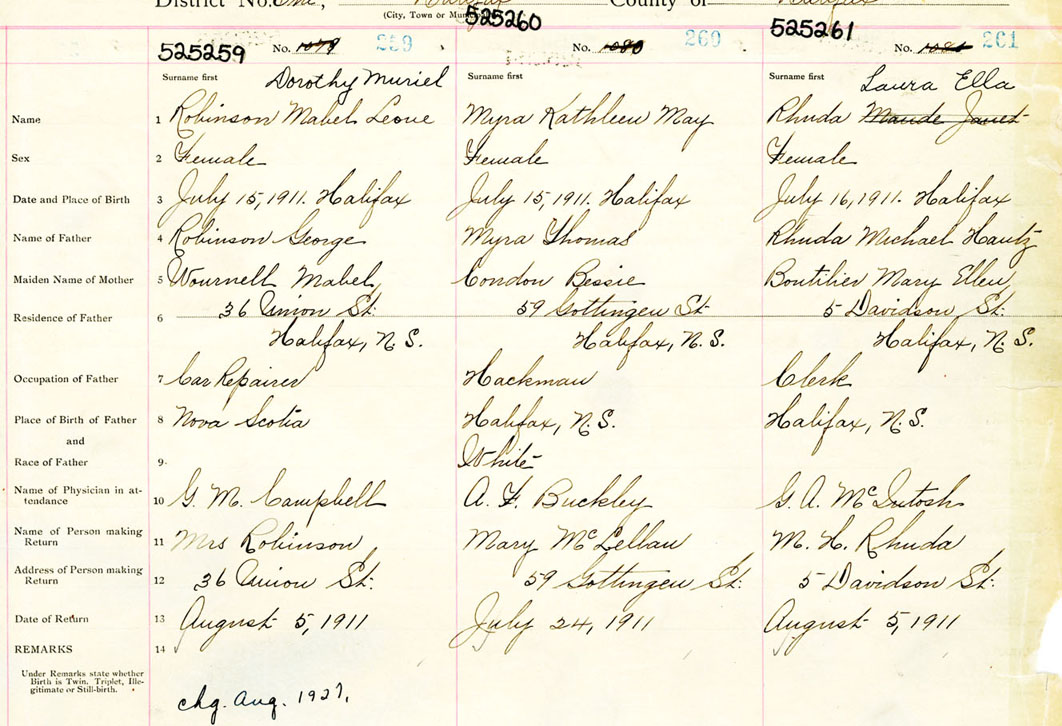 District No. One, Halifax County of Halifax
(City, Town or Mun
525259 No. 1079 259
525260 No. 1080 260
525261 No. 1081 261
Surname first Dorothy Muriel Surname first Surname first Laura Ella
Name 1 Robinson Mabel Leone Myra Kathleen May Rhuda Maude Janet
Sex 2 Female Female Female
Date and Place of Birth 3 July 15, 1911. Halifax July 15, 1911. Halifax July 16, 1911. Halifax
Name of Father 4 Robinson George Myra Thomas Rhuda Michael Hautz
Maiden Name of Mother 5 Wournell Mabel, Condon Bessie Boutilier Mary Ellen,
Residence of Father 6 36 Union St. 59 Gottingen St. 5 Davidson St.
Halifax, N.S. Halifax, N.S. Halifax, N.S.
Occupation of Father 7 Car Repairer Hackman Clerk
Place of Birth of Father 8 Nova Scotia Halifax, N.S. Halifax, N.S.
and
Race of Father 9. White
Name of Physician in at-
tendance 10 G. M. Campbell A. F. Buckley G. A. McIntosh
Name of Person making
Return 11 Mrs Robinson Mary McLellan M. H. Rhuda
Address of Person making
Return 12 36 Union St. 59 Gottingen St. 5 Davidson St.
Date of Return 13 August 5, 1911 July 24, 1911 August 5, 1911
REMARKS 14
Under Remarks state whether
Birth is Twin. Triplet, Ille-
gitimate or Still-birth.
chg. Aug. 1927.